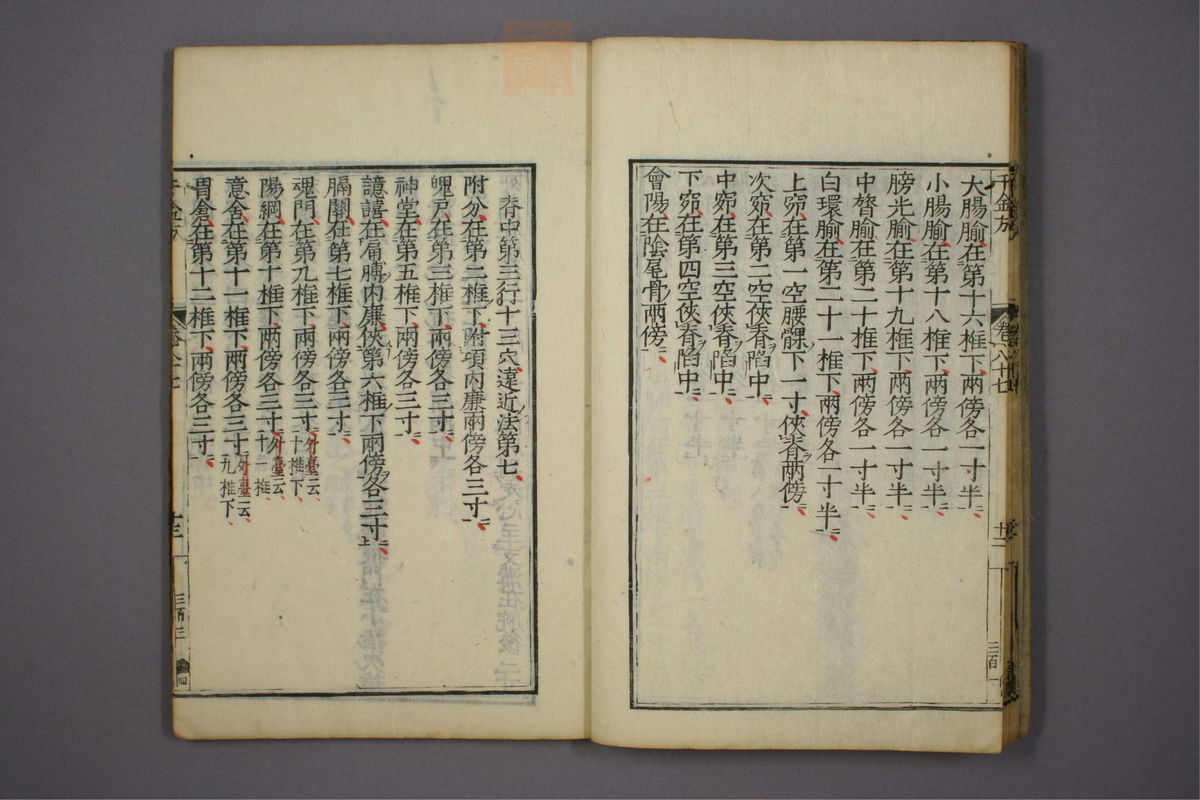 千金方
卷八十七
廿二
三百一
大腸腧在第十六椎下兩傍各一寸半
小腸腧在第十八椎下兩傍各一寸半
膀光腧在第十九椎下兩傍各一寸半
中膂腧在第二十椎下兩傍各一寸半
白環腧在第二十一椎下兩傍各一寸半
上窌在第一空腰髁下一寸俠脊兩傍
次窌在第二空俠脊陷中
中窌在第三空俠脊陷中
下窌在第四空俠脊陷中
會陽在陰尾骨兩傍
脊中第三行十三穴遠近法第七
附分在第二椎下附項內廉兩傍各三寸
魄戶在第三椎下兩傍各三寸
神堂在第五椎下兩傍各三寸
譩譆在肩膊內廉俠第六椎下兩傍各三寸
膈關在第七椎下兩傍各三寸
魂門在第九椎下兩傍各三寸外臺云十椎下
陽綱在第十椎下兩傍各三寸外臺云十一椎
意舍在第十一椎下兩傍各三寸外臺云九椎下
胃倉在第十二椎下兩傍各三寸
三百三